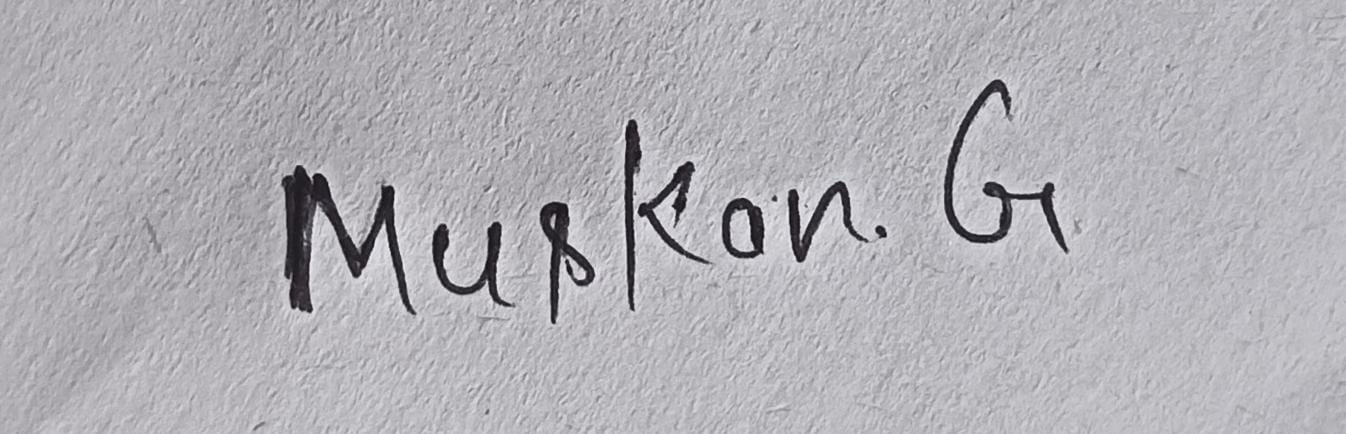 Muskan. G